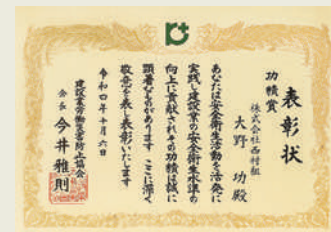 表彰状
功績賞
株式会社西村組
大野 功殿
あなたは安全衛生活動を活発に
実践し建設業の安全衛生水準の
向上に貢献されその功績は誠に
顕著なものがあります ここに深く
敬意を表し表彰いたします
令和四年十月六日
建設業労働災害防止協会
会長 今井雅則